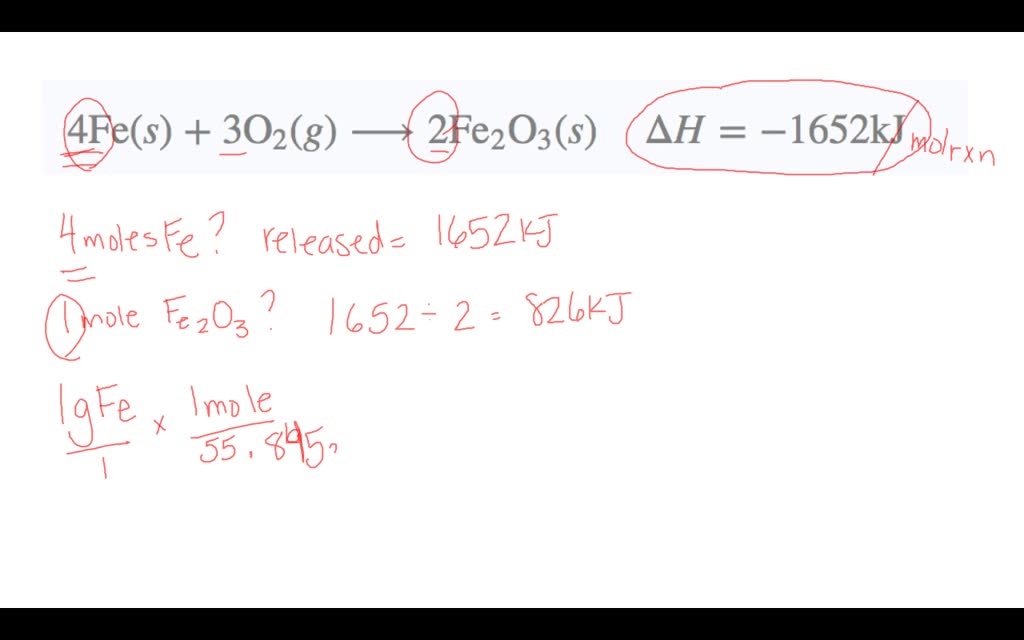 4Fe(s) + 3O₂(g) ⟶ 2Fe₂O₃(s) ΔH = −1652kJ/molrxn
4 moles Fe? released = 1652 kJ
1 mole Fe₂O₃? 1652 ÷ 2 = 826 kJ
1gFe/1 × 1mole/55.845